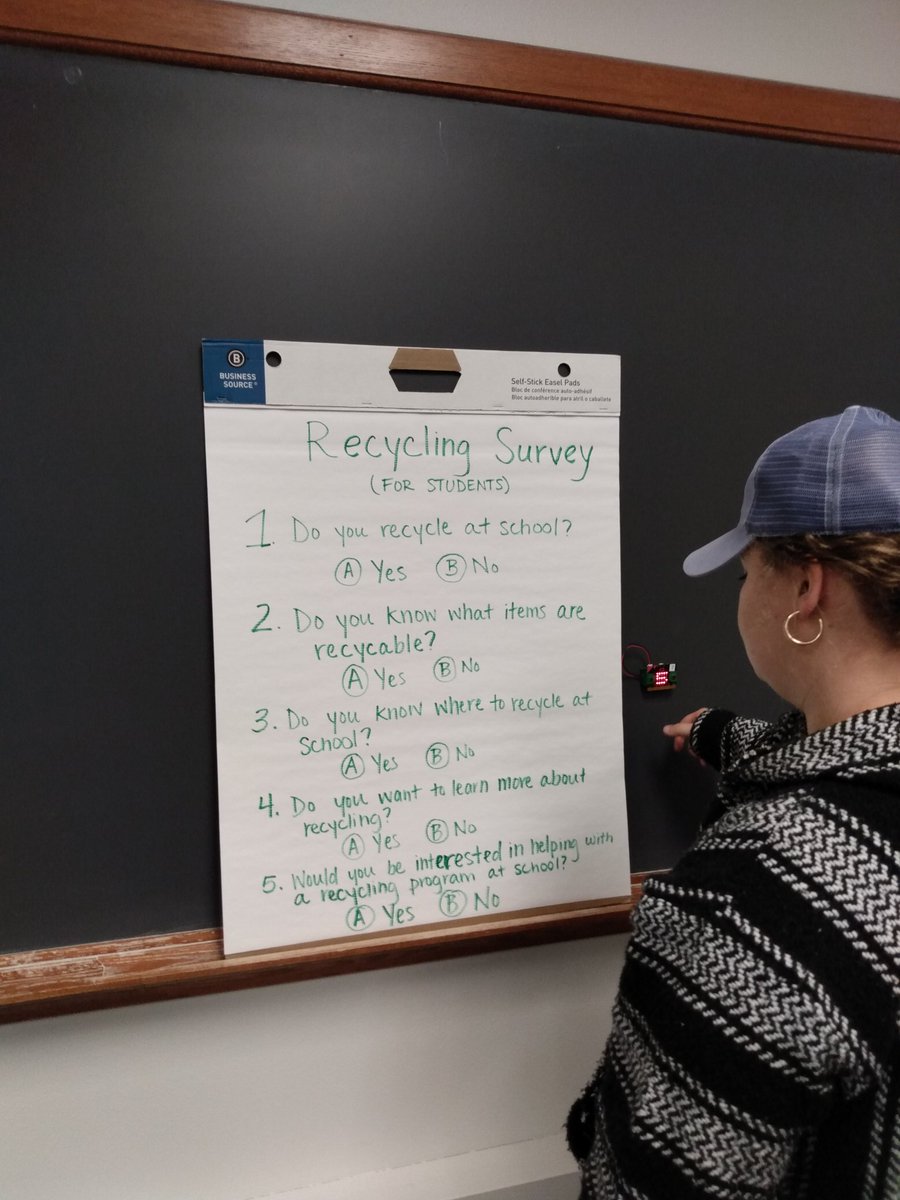 B
BUSINESS
SOURCE®
Self-Stick Easel Pads
Bloc de conférence auto-adhésif
Bloc autoadherible para atril o caballete
Recycling Survey
(FOR STUDENTS)
1. Do you recycle at school?
A Yes B No
2. Do you know what items are
recycable?
A Yes B No
3. Do you know where to recycle at
school?
A Yes B No
4. Do you want to learn more about
recycling?
A Yes B No
5. Would you be interested in helping with
a recycling program at school?
A Yes B No